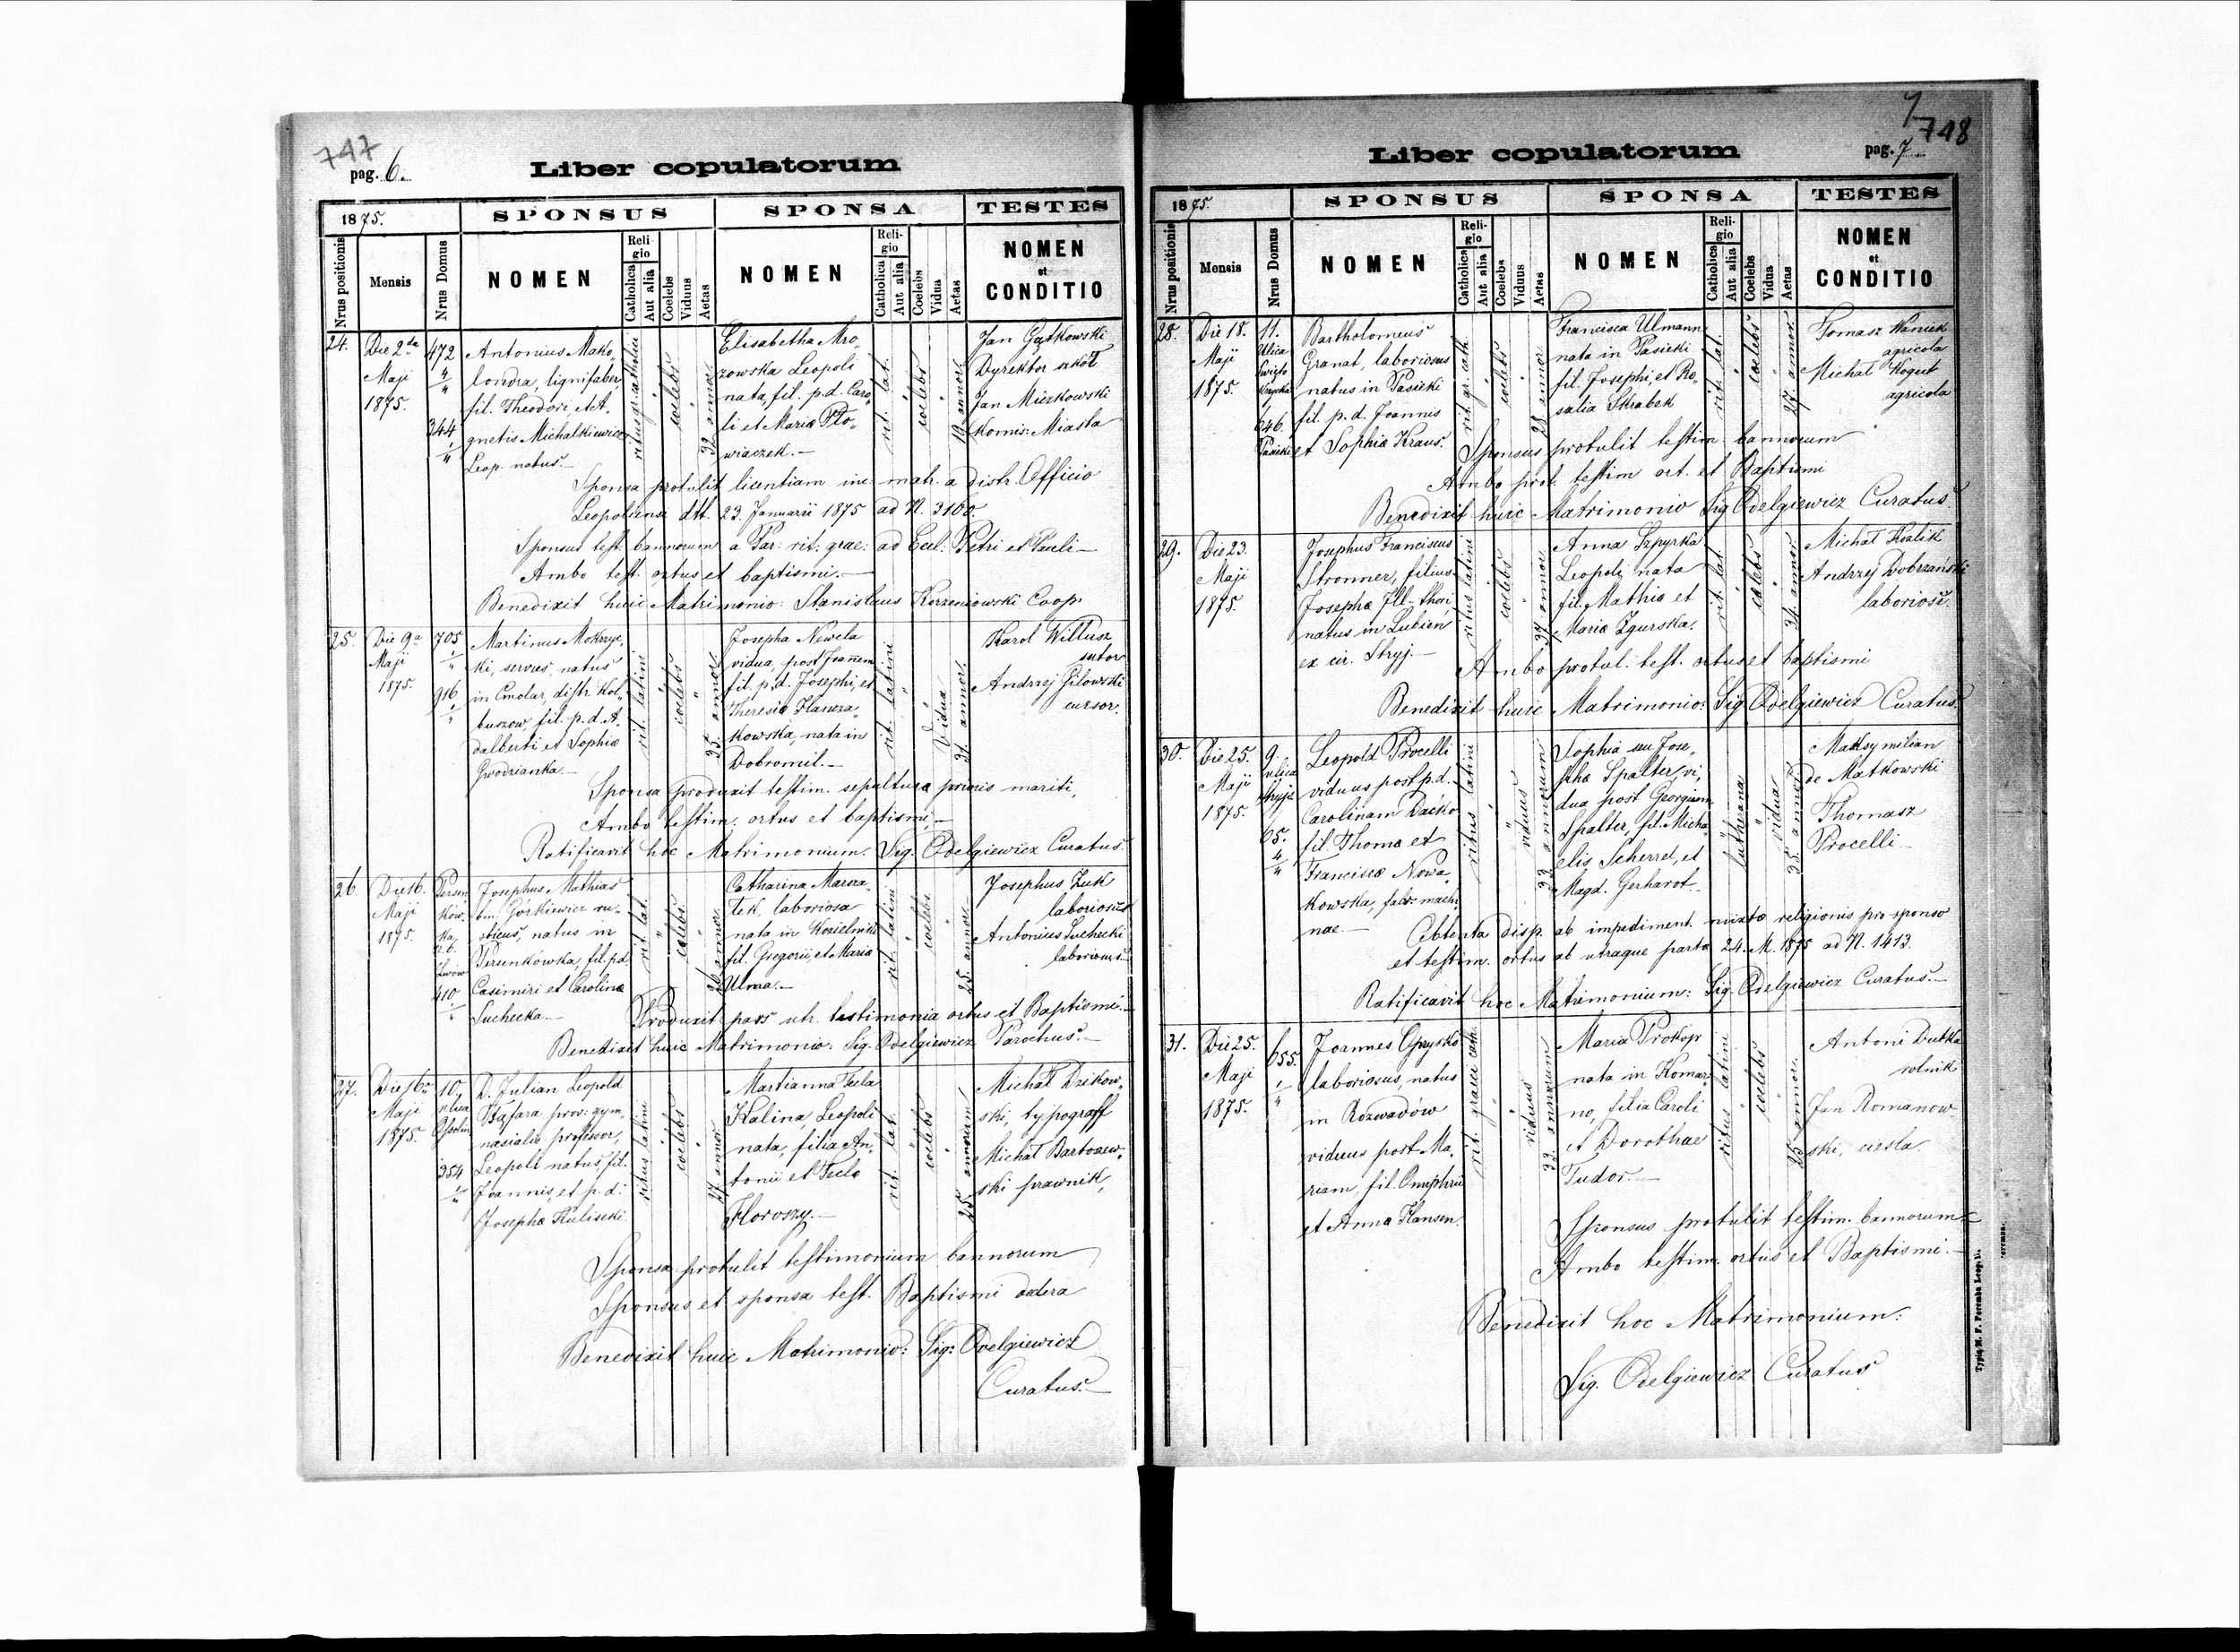 747
pag. 6.
Liber copulatorum
1875.
SPONSUS
SPONSA
TESTES
Nrus positionis
Mensis
Nrus Domus
NOMEN
Religio
Catholica
Aut alia
Coelebs
Viduus
Aetas
NOMEN
Religio
Catholica
Aut alia
Coelebs
Vidua
Aetas
NOMEN
et
CONDITIO
24.
Die 2da
Maji
1875.
472
4/4
344
1/4
Antonius Mako,
londra, lignifaber,
fil. Theodori, et A,
gnetis Michalkiewicz
Leop. natus.
ritus gr. catholici
coelebs
32 annor.
Elisabetha Mro,
zowska Leopoli
nata, fil. p.d. Caro,
li et Maria Pło,
wiaczek.
rit. lat.
coelebs
19 annor.
Jan Gątkowski
Dyrektor szkół
Jan Mierkowski
Komis: Miasta
Sponsa protulit licentiam ine. matr. a distr. Officio
Leopoliensi dtt. 23. Januarii 1875 ad N. 3160.
Sponsus test. bannorum a Par: rit. graec: ad Eccl: Petri et Pauli
Ambo test. ortus et baptismi.
Benedixit huic Matrimonio: Stanislaus Korzeniowski Coop.
25.
Die 9a
Maji
1875.
705
1/4
916
1/4
Martinus Mokrzyc,
ki, servus, natus
in Cmolas, distr. Kol,
buszow, fil. p.d. A,
dalberti et Sophia
Gwodzianka.
rit. latini
coelebs
35. annor.
Josepha Newela
vidua, post Joannem
fil. p.d. Josephi, et
Theresia Hancza,
kowska, nata in
Dobromil.
rit. latini
Vidua
31. annor.
Karol Willusz
sutor
Andrzej Gilowski
cursor.
Sponsa produxit testim. sepultura primis mariti,
Ambo testim. ortus et baptismi,
Ratificavit hoc Matrimonium. Sig. Odelgiewicz Curatus.
26.
Die 16.
Maji
1875.
Persen
ków,
ka
n. b.
Lwów
410.
Josephus Mathias
bin. Górkiewicz ru,
sticus, natus in
Persenkówka, fil. p.d.
Casimiri et Carolina
Suchecka.
rit. lat.
coelebs
26 annor.
Catharina Marsza,
łek, laboriosa
nata in Kozielniki
fil. Gregorii, et Maria
Ulma.
rit. latini
coelebs
25. annor.
Josephus Żuk
laboriosus
Antonius Suchecki
laboriosus
Produxit pars utr. testimonia ortus et Baptismi.
Benedixit huic Matrimonio: Sig. Odelgiewicz Parochus.
27.
Die 16a
Maji
1875.
10.
ulica
Ossolin
354
1/4
D. Julian Leopold
Bąfara prov: gym,
nasialis professor,
Leopoli natus, fil.
Joannis, et p.d:
Josepha Kulisecki
ritus latini
coelebs
27. annor.
Martianna Tecla
Kalina, Leopoli
nata, filia An,
tonii et Tecla
Horoszy.
rit. lat.
coelebs
25. annorum
Michał Dzikow,
ski, typograff
Michał Bartoszew,
ski prawnik,
Sponsa protulit testimonium bannorum
Sponsus et sponsa test. Baptismi
Benedixit huic Matrimonio: Sig: Odelgiewicz
Curatus.
7
748
pag. 7
Liber copulatorum
1875.
SPONSUS
SPONSA
TESTES
Nrus positionis
Mensis
Nrus Domus
NOMEN
Religio
Catholica
Aut alia
Coelebs
Viduus
Aetas
NOMEN
Religio
Catholica
Aut alia
Coelebs
Vidua
Aetas
NOMEN
et
CONDITIO
28.
Die 18.
Maji
1875.
11.
Ulica
Święto
Krzyska
646.
Pasieki
Bartholomeus
Granat, laboriosus
natus in Pasieki
fil. p.d. Joannis
et Sophia Kraus.
rit gr. cath.
coelebs
28 annor.
Francisca Ulmann
nata in Pasieki
fil. Josephi, et Ro,
salia Skrabek
rit. lat.
coelebs
27. annor.
Tomasz Waniek
agricola
Michał Kogut
agricola
Sponsus protulit testim. bannorum
Ambo prot. testim ort. et Baptismi
Benedixit huic Matrimonio Sig Odelgiewicz Curatus.
29.
Die 23.
Maji
1875.
Josephus Franciscus
Stronner, filius
Josepha Ill-thori
natus in Lubień
ex cir. Stryj.
ritus latini
coelebs
37 annor.
Anna Szpyrka
Leopoli nata
fil. Mathia et
Maria Zgurska.
rit. lat.
coelebs
34. annor.
Michał Kozlik
Andrzej Dobrzański
laboriosi.
Ambo protul. test. ortus et baptismi
Benedixit huic Matrimonio: Sig. Odelgiewicz Curatus.
30.
Die 25.
Maji
1875.
9.
ulica
Stryjs.
65.
4/4
Leopold Procelli
viduus post p.d.
Carolinam Dacko
fil. Thoma et
Francisca Nowa,
kowska, fabr. machi
nae.
ritus latini
viduus
33 annorum
Sophia seu Jose,
pha Spalter, vi,
dua post Georgium
Spalter, fil. Micha
elis Scherrel, et
Magd. Gerhardt
lutherana
vidua
35. annor.
Maksymilian
de Matkowski
Thomasz
Procelli
Obtenta disp. ab impediment. mixta religionis pro sponso
et testim. ortus ab utraque parta 24. M. 1875 ad N. 1413.
Ratificavit hoc Matrimonium: Sig. Odelgiewicz Curatus.
31.
Die 25.
Maji
1875.
655.
1/4
Joannes Oprysko
laboriosus, natus
in Rozwadów
viduus post Ma,
riam, fil. Onuphrii
et Anna Hansen.
rit. graeci cath.
viduus
33 annorum
Maria Prokop
nata in Komar
no, filia Caroli
et Dorothae
Tudor.
ritus latini
coelebs
25 annor.
Antoni Dutka
rolnik
Jan Romanow
ski, cieśla.
Sponsus protulit testim. bannorum
Ambo testim. ortus et Baptismi.
Benedixit hoc Matrimonium:
Sig. Odelgiewicz Curatus
Typis M. F. Poremba Leop.